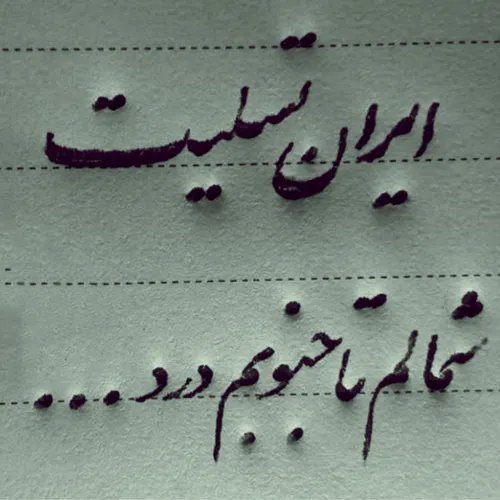 ایران تسلیت
شمالم تا جنوبم درد...